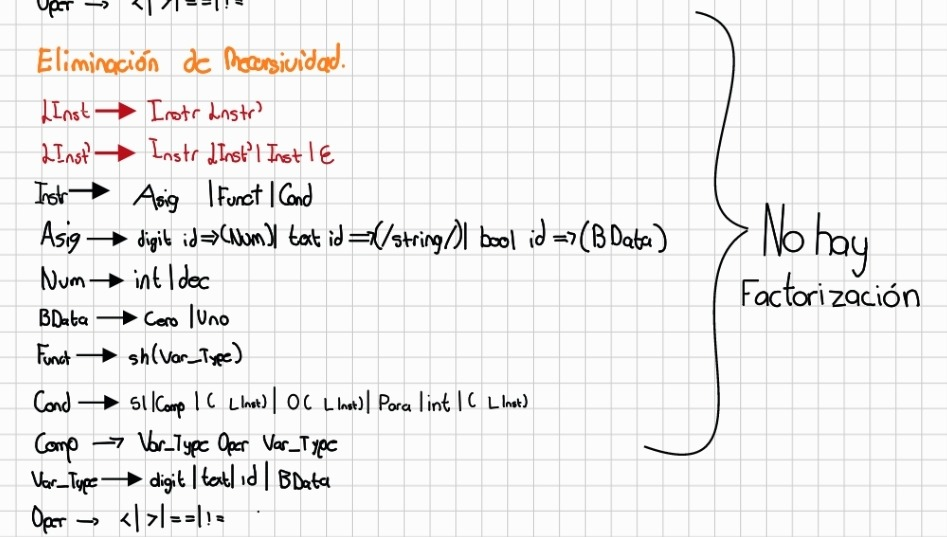 Oper → <|>|==|!=
Eliminación de Recursividad.
LInst → Instr Lnstr'
LInst' → Instr LInst' | Inst | ε
Instr → Asig | Funct | Cond
Asig → digit id=>(Num)| text id=>(/string/)| bool id=>(BData)
Num → int | dec
BData → Cero | Uno
Funct → sh(Var_Type)
Cond → SI|Comp | ( LInst) | O( LInst)| Para |int | ( LInst)
Comp → Var_Type Oper Var_Type
Var_Type → digit | text | id | BData
Oper → <|>|==|!=
No hay
Factorización